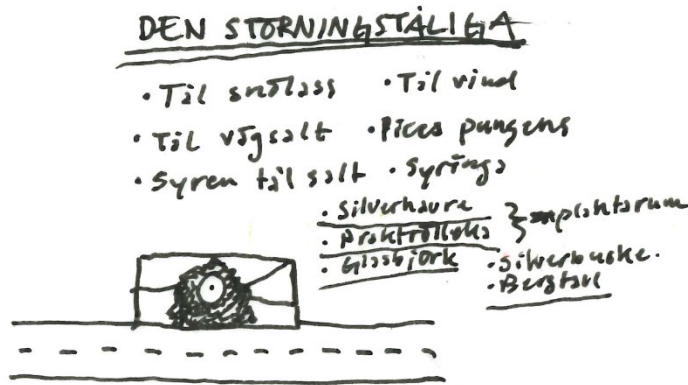 DEN STÖRNINGSTÅLIGA
• Tål snölass • Tål vind
• Tål vägsalt • Picea pungens
• Syren tål salt • Syringa
• Silverhavre
• Präktrölleka
• Glasbjörk • Silverbuske.
• Bergtall